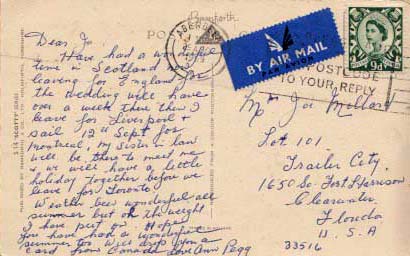 Bamforth
POST
ABERDEEN
BY AIR MAIL
PAR AVION
9d
POSTCODE
TO YOUR REPLY
Dear Jo.
Have had a wonderful
time in Scotland
leaving for England for
the wedding will have
over a week there then I
leave for Liverpool &
sail 12th Sept for
Montreal, my sister in law
will be there to meet me
& we will have a little
holiday together before we
leave for Toronto!
Weather been wonderful all
summer but oh the weight
I have put on. Hope
you have had a wonderful
summer too Will drop you a
card from Canada Love Ann Pegg
Mrs Jo Mollard
Lot 101
Trailer City.
1650 So. Fort Harrison
Clearwater,
Florida
U.S.A
33516